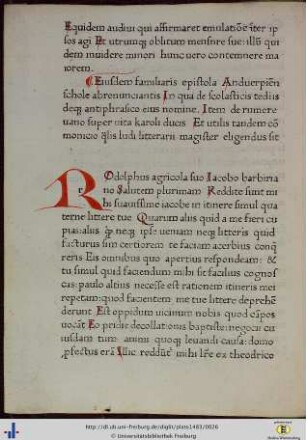 Equidem audiui qui affirmaret emulatiōe īter ip
sos agi Et utrumq; oblitum mensure sue: illū qui
dem inuidere minori hunc uero contemnere ma
iorem.
Eiusdem familiaris epistola Anduerpiēn
schole abrenunciantis In qua de scolasticis tediis
deq; antiphrasico eius nomine. Item de rumere
uano super uita karoli ducis Et utilis tandem cō
monicio qlis ludi litterarii magister eligendus sit
ROdolphus agricola suo Iacobo barbiria
no Salutem plurimam Reddite sunt mi
hi suauissime iacobe in itinere simul qua
terne littere tue Quarum aliis quid a me fieri cu
pias: aliis neq; ipse ueniam neq; litteris quid
facturus sim certiorem te faciam acerbius conq̄
reris Eis omnibus quo apertius respondeam: &
tu simul quid faciendum mihi sit facilius cognos
cas: paulo altius necesse est rationem itineris mei
repetam: quod facientem me tue littere deprehē
derunt Est oppidum uicinum nobis quod cāpos
uocāt Eo pridie decollationis baptiste: negocii cu
iusdam tum animi quoq; leuandi causa: domo
pfectus erā Illic reddūt mihi lr̄e ex theodrico
http://dl.ub.uni-freiburg.de/diglit/plenv1483/0026
© Universitätsbibliothek Freiburg